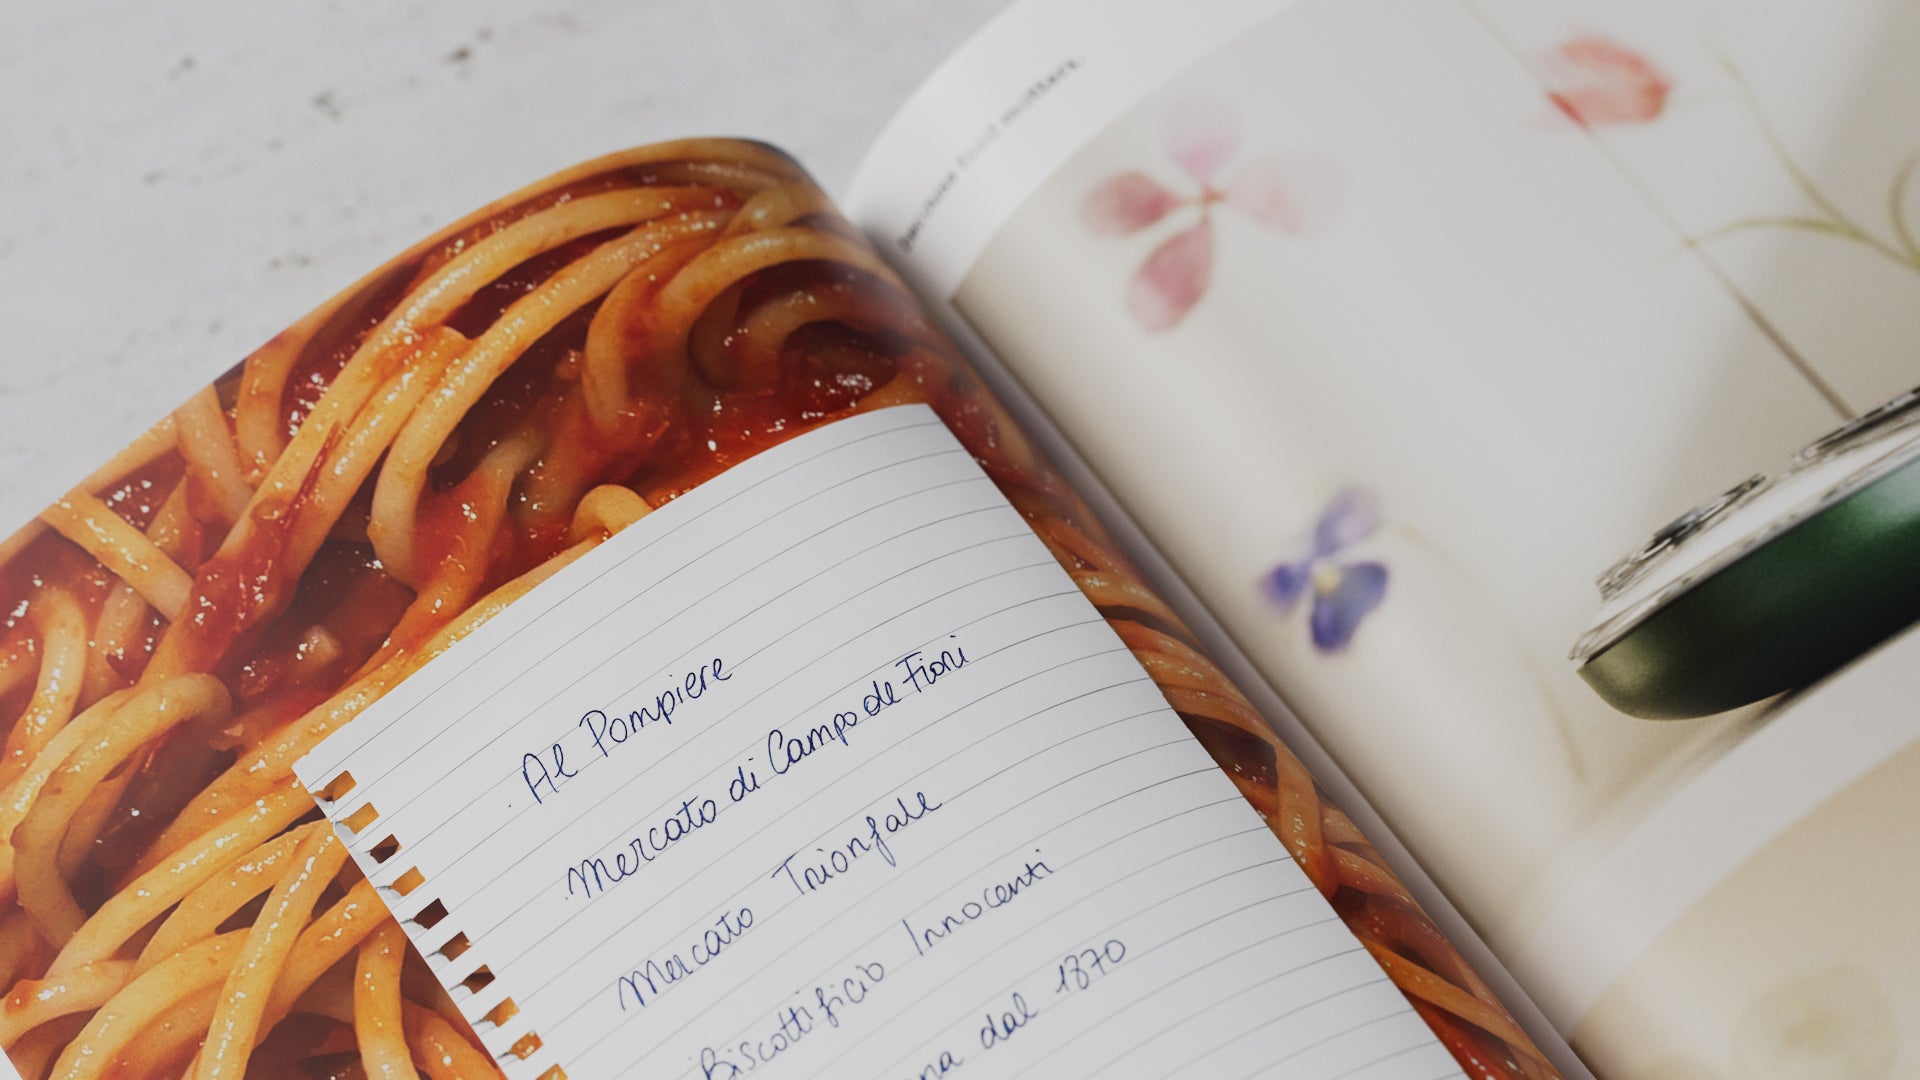 Because food matters.
Al Pompiere
Mercato di Campo de Fiori
Mercato Trionfale
Biscottificio Innocenti
dal 1870